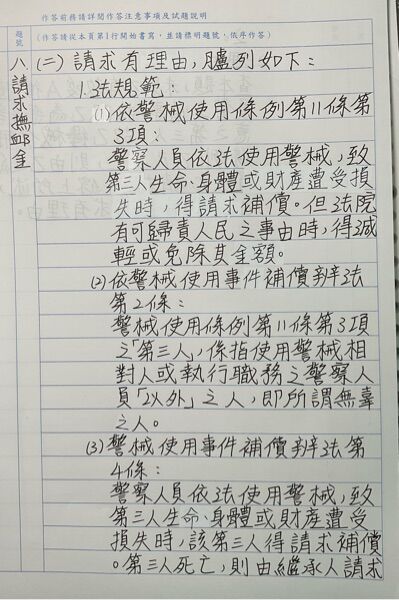 作答前務請詳閱作答注意事項及試題說明
題號
(作答請從本頁第1行開始書寫，並請標明題號，依序作答)
八請求撫卹金
(二)請求有理由，臚列如下：
1.法規範：
(1)依警械使用條例第11條第
3項：
警察人員依法使用警械，致
第三人生命、身體或財產遭受損
失時，得請求補償。但法院
有可歸責人民之事由時，得減
輕或免除其金額。
(2)依警械使用事件補償辦法
第2條：
警械使用條例第11條第3項
之「第三人」，係指使用警械相
對人或執行職務之警察人
員「以外」之人，即所謂無辜
之人。
(3)警械使用事件補償辦法第
4條：
警察人員依法使用警械，致
第三人生命、身體或財產遭受
損失時，該第三人得請求補償
。第三人死亡，則由繼承人請求